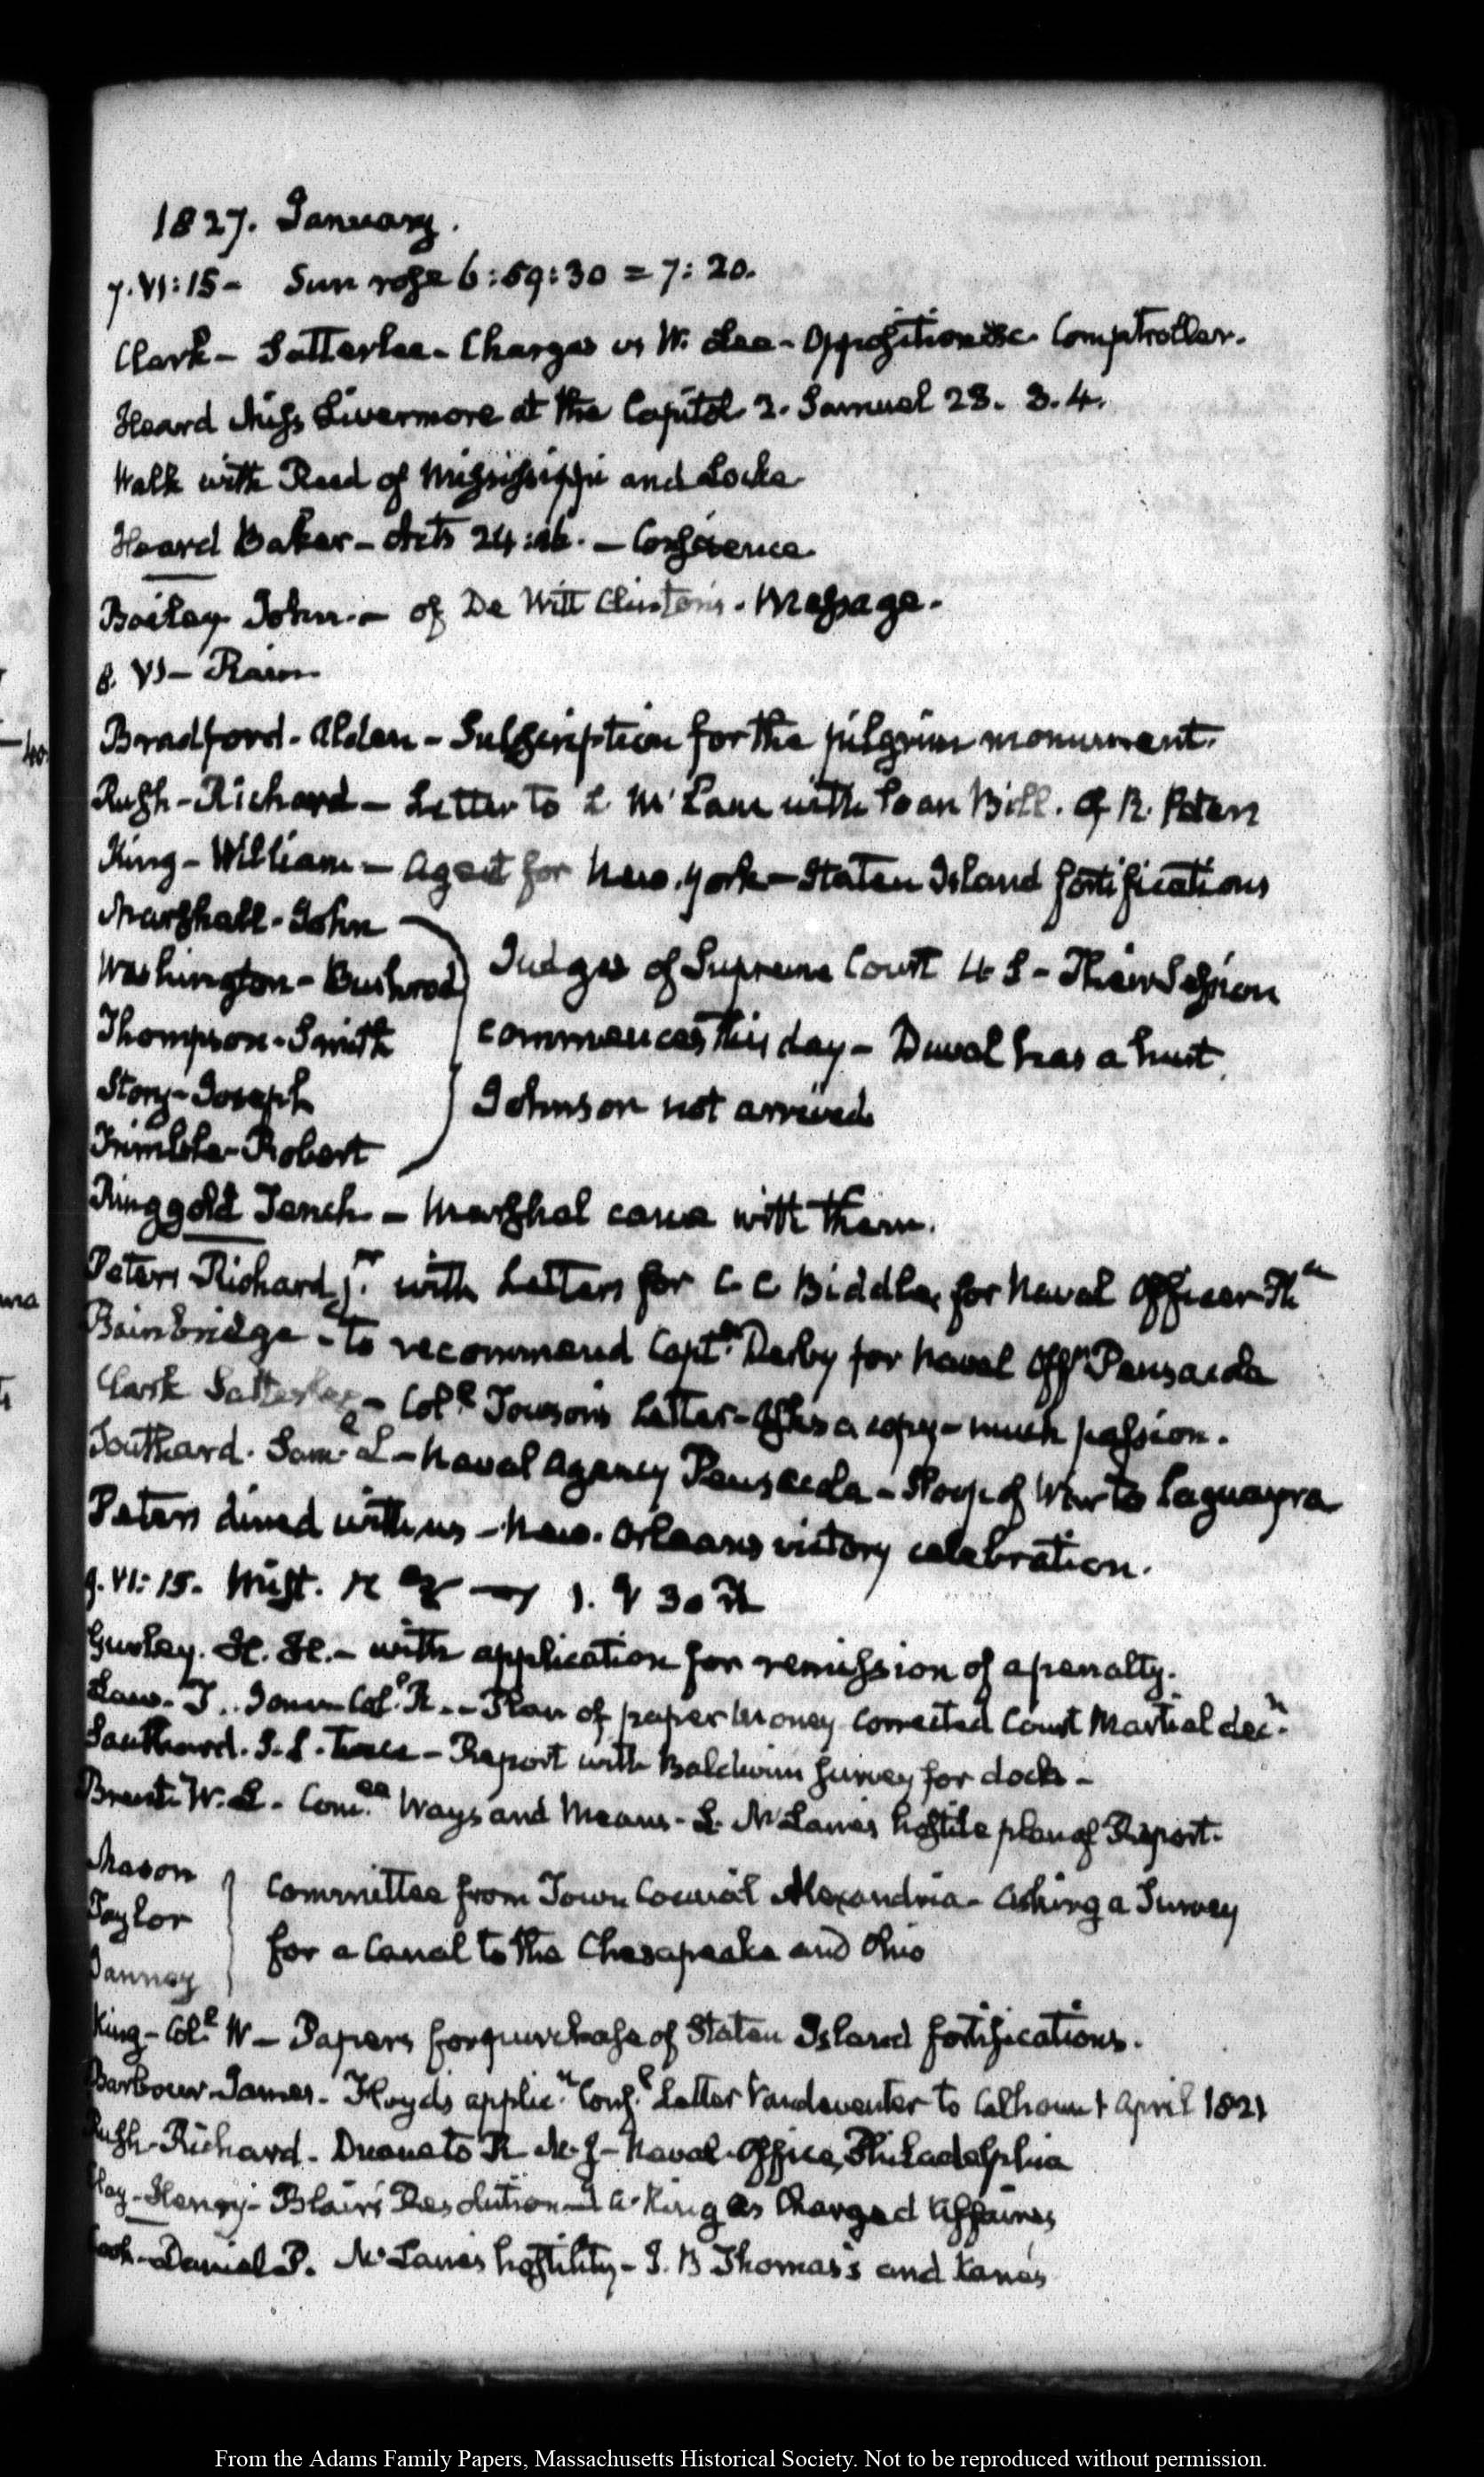 1827. January.
7. VI:15- Sun rose 6:59:30 = 7:20.
Clark - Satterlee - Charges vs W. Lee - Opposition &c. Comptroller.
Heard Miss Livermore at the Capitol 2. Samuel 23. 3.4.
Walk with Reed of Mississippi and Locke
Heard Baker - Acts 24:16. - Conscience.
Bailey John - of De Witt Clinton's Message.
8. VI - Rain
Bradford - Alden - Subscription for the pilgrim monument.
Rush - Richard - Letter to L McLane with Loan Bill. of R. Peters
King - William - Agent for New-York - Staten Island fortifications
Marshall - John
Washington - Bushrod
Thompson - Smith
Story - Joseph
Trimble - Robert
Judges of Supreme Court U S - Their Session
commences this day - Duval has a hurt
Johnson not arrived
Ringgold Tench - Marshal came with them.
Peters Richard jr. with Letters for C. C Biddle, for Naval Officer Pha
Bainbridge - to recommend Captn. Derby for Naval Offr Pensacola
Clark Satterlee - Coll. Towson's Letter - Asks a copy - much passion.
Southard. Saml. L - Naval Agency Pensacola - Sloop of War to Laguayra
Peters dined with us - New-Orleans victory celebration.
9. VI:15. Mist.
Gurley. H. H. - with application for remission of a penalty.
Law. T. Jones Coll. R. - Plan of paper Money corrected Court Martial decn.
Southard. S. L. twice - Report with Baldwin survey for docks -
Brent. W. L. - Comee. Ways and Means - L. McLane's hostile plan of Report.
Mason
Taylor
Janney
Committee from Town Council Alexandria - asking a Survey
for a Canal to the Chesapeake and Ohio
King - Coll. W - Papers for purchase of Staten Island fortifications.
Barbour James - Floyd's applicn. Confl. Letter Vandeventer to Calhoun April 1821
Rush - Richard - Duane to R - Naval Office, Philadelphia
Clay - Henry - Blair's Resolution - J A. King as Charge d'Affaires
Cook - Daniel P. McLane's hostility - J. B Thomas's and Kane's